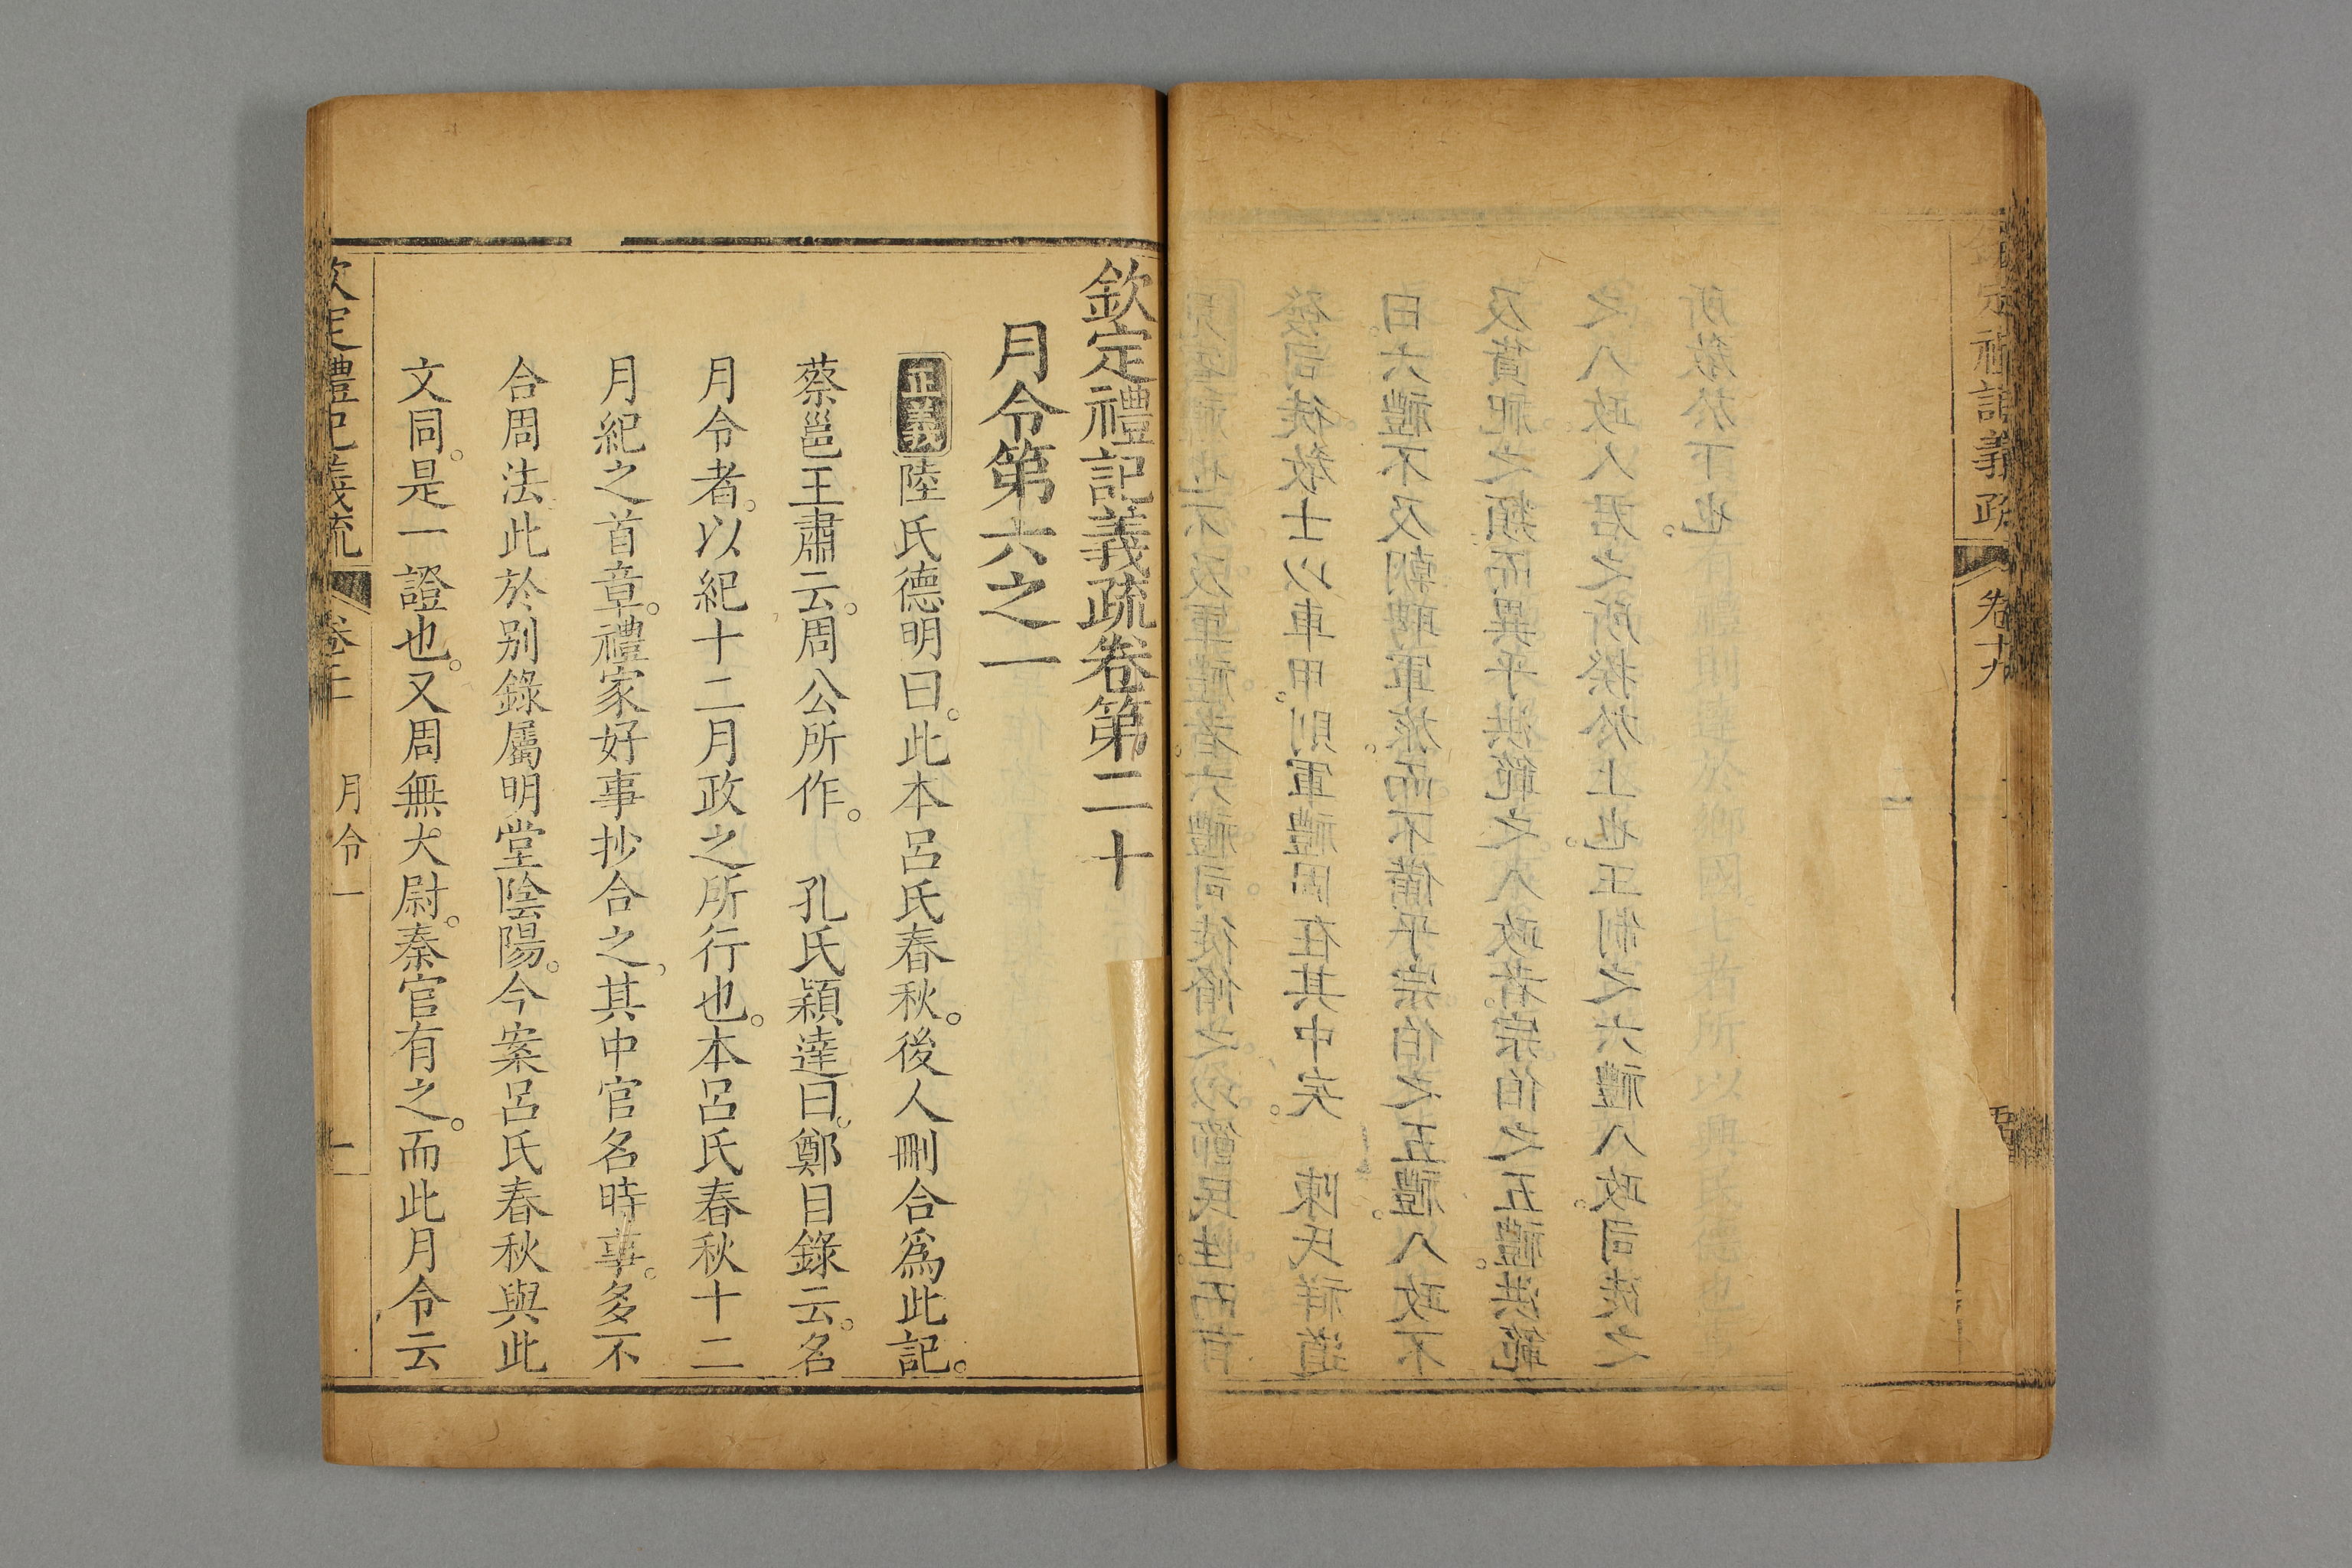 定禮記義疏 卷十九
發司徒敎士以車甲。則軍禮固在其中矣。 陳氏祥道
曰。六禮不及朝聘軍旅。而不備乎宗伯之五禮。八政不
及貨祀之類。而異乎洪範之八政者。宗伯之五禮。洪範
之八政。人君之所操於上也。王制之六禮八政。司徒之
所敎於下也。
欽定禮記義疏卷第二十
月令第六之一
正義陸氏德明曰。此本呂氏春秋。後人刪合爲此記。
蔡邕王肅云。周公所作。 孔氏穎達曰。鄭目錄云。名
月令者。以紀十二月政之所行也。本呂氏春秋十二
月紀之首章。禮家好事抄合之。其中官名時事。多不
合周法此於别錄屬明堂陰陽。今案呂氏春秋與此
文同。是一證也。又周無大尉。秦官有之。而此月令云
欽定禮記義疏 卷二十 月令一 一